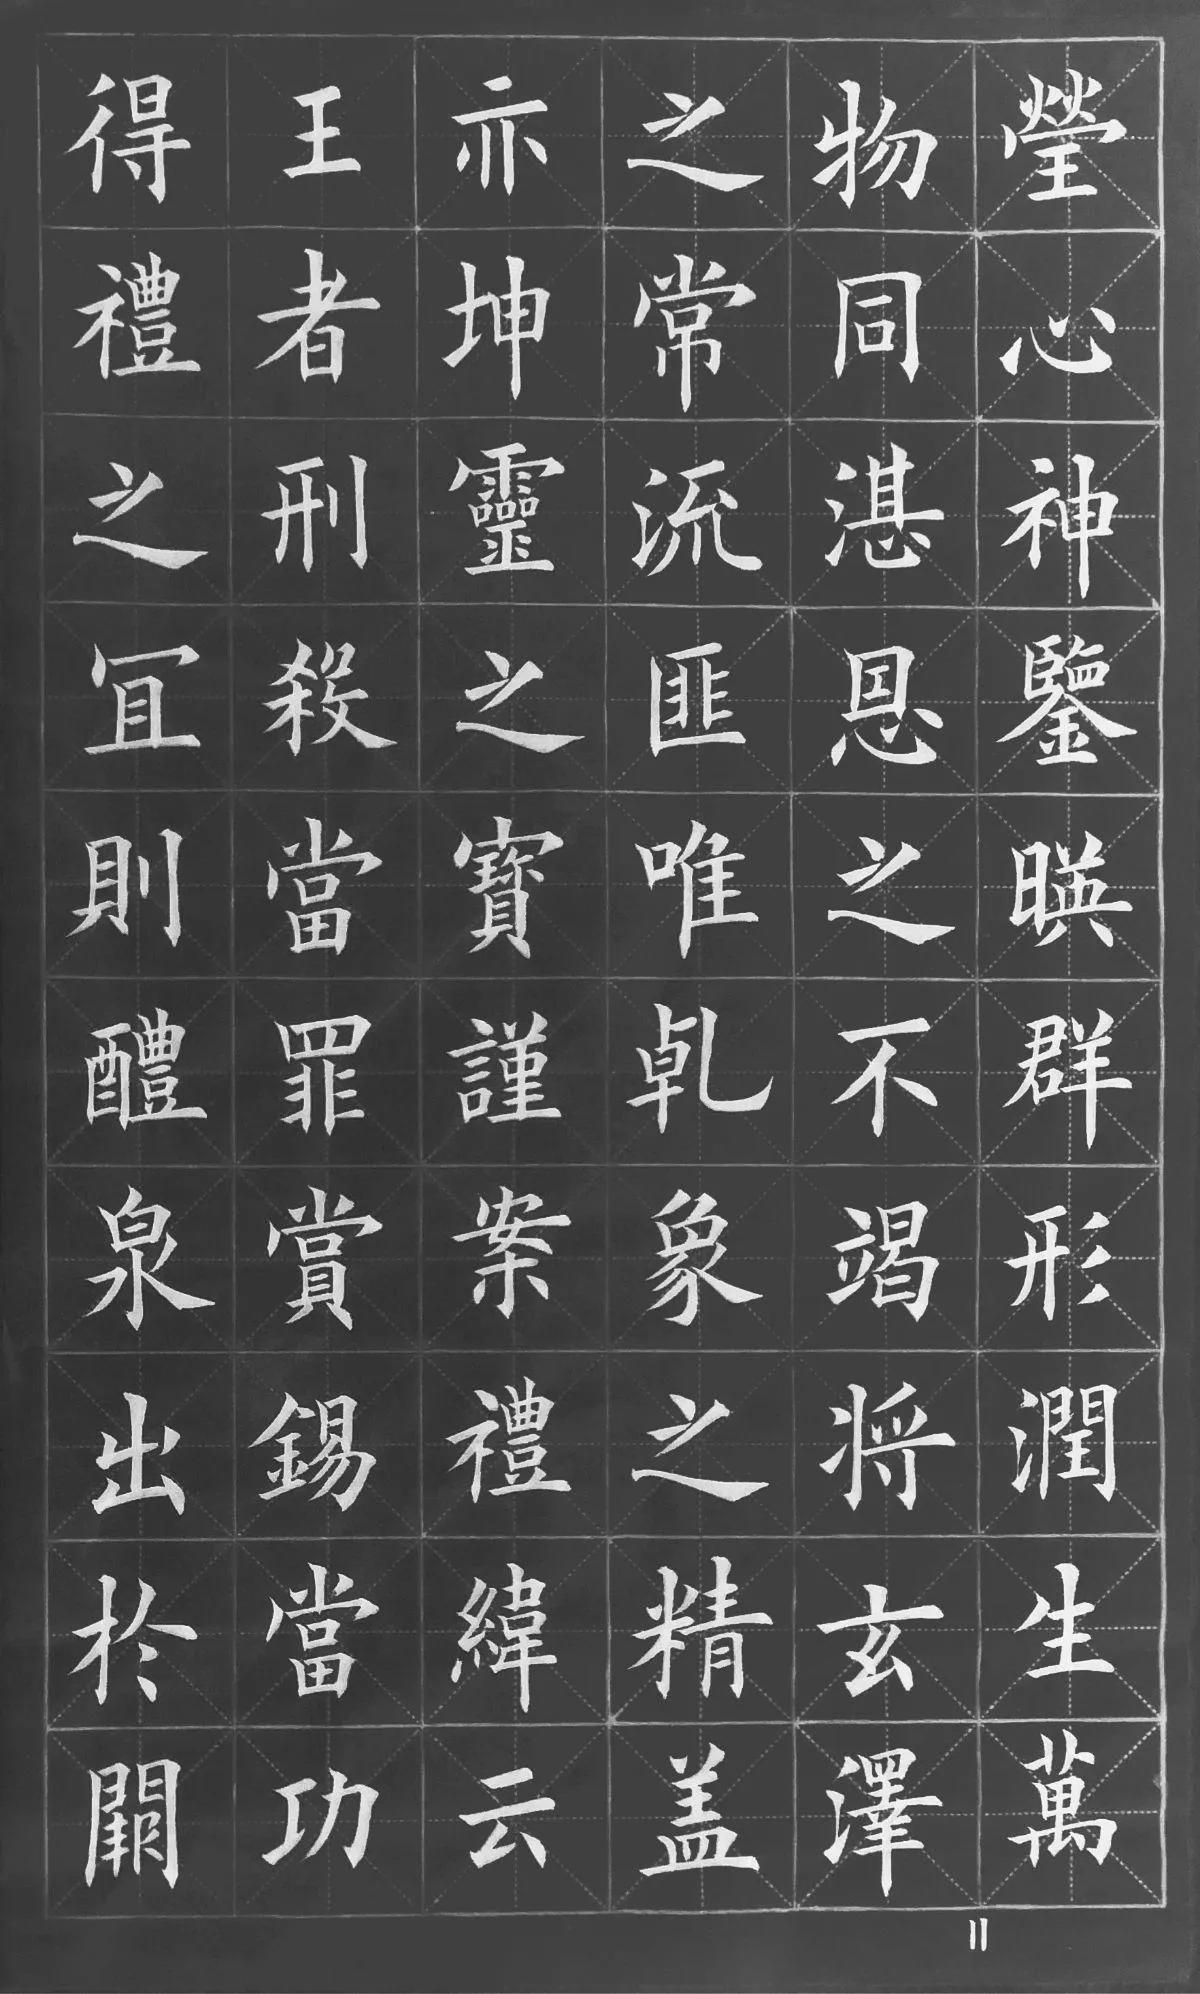 瑩心神鑒暎群形潤生萬
物同湛恩之不竭将玄澤
之常流匪唯乹象之精盖
亦坤靈之寶謹案禮緯云
王者刑殺當罪賞錫當功
得禮之冝則醴泉出於闕
11